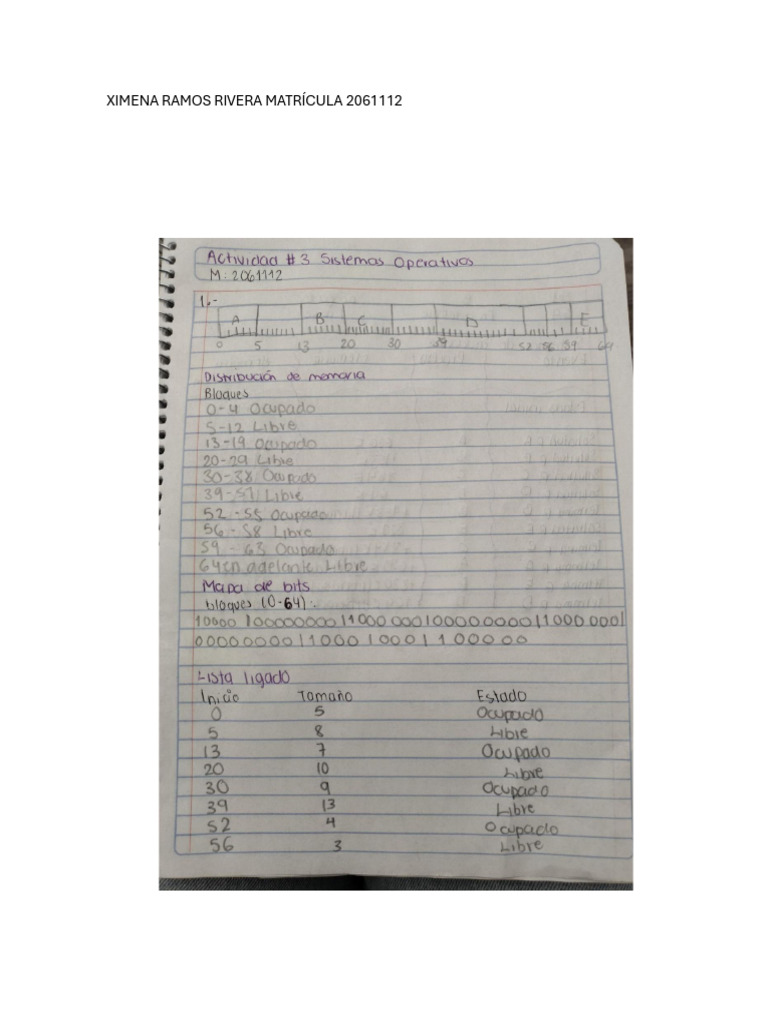 XIMENA RAMOS RIVERA MATRÍCULA 2061112
Actividad #3 Sistemas Operativos
M: 2061112
1.-
A B C D E
0 5 13 20 30 39 52 56 59 64
Distribución de memoria
Bloques
0-4 Ocupado
5-12 Libre
13-19 Ocupado
20-29 Libre
30-38 Ocupado
39-51 Libre
52-55 Ocupado
56-58 Libre
59-63 Ocupado
64 en adelante Libre
Mapa de bits
bloques (0-64):
Lista ligado
Inicio Tamaño Estado
0 5 Ocupado
5 8 Libre
13 7 Ocupado
20 10 Libre
30 9 Ocupado
39 13 Libre
52 4 Ocupado
56 3 Libre